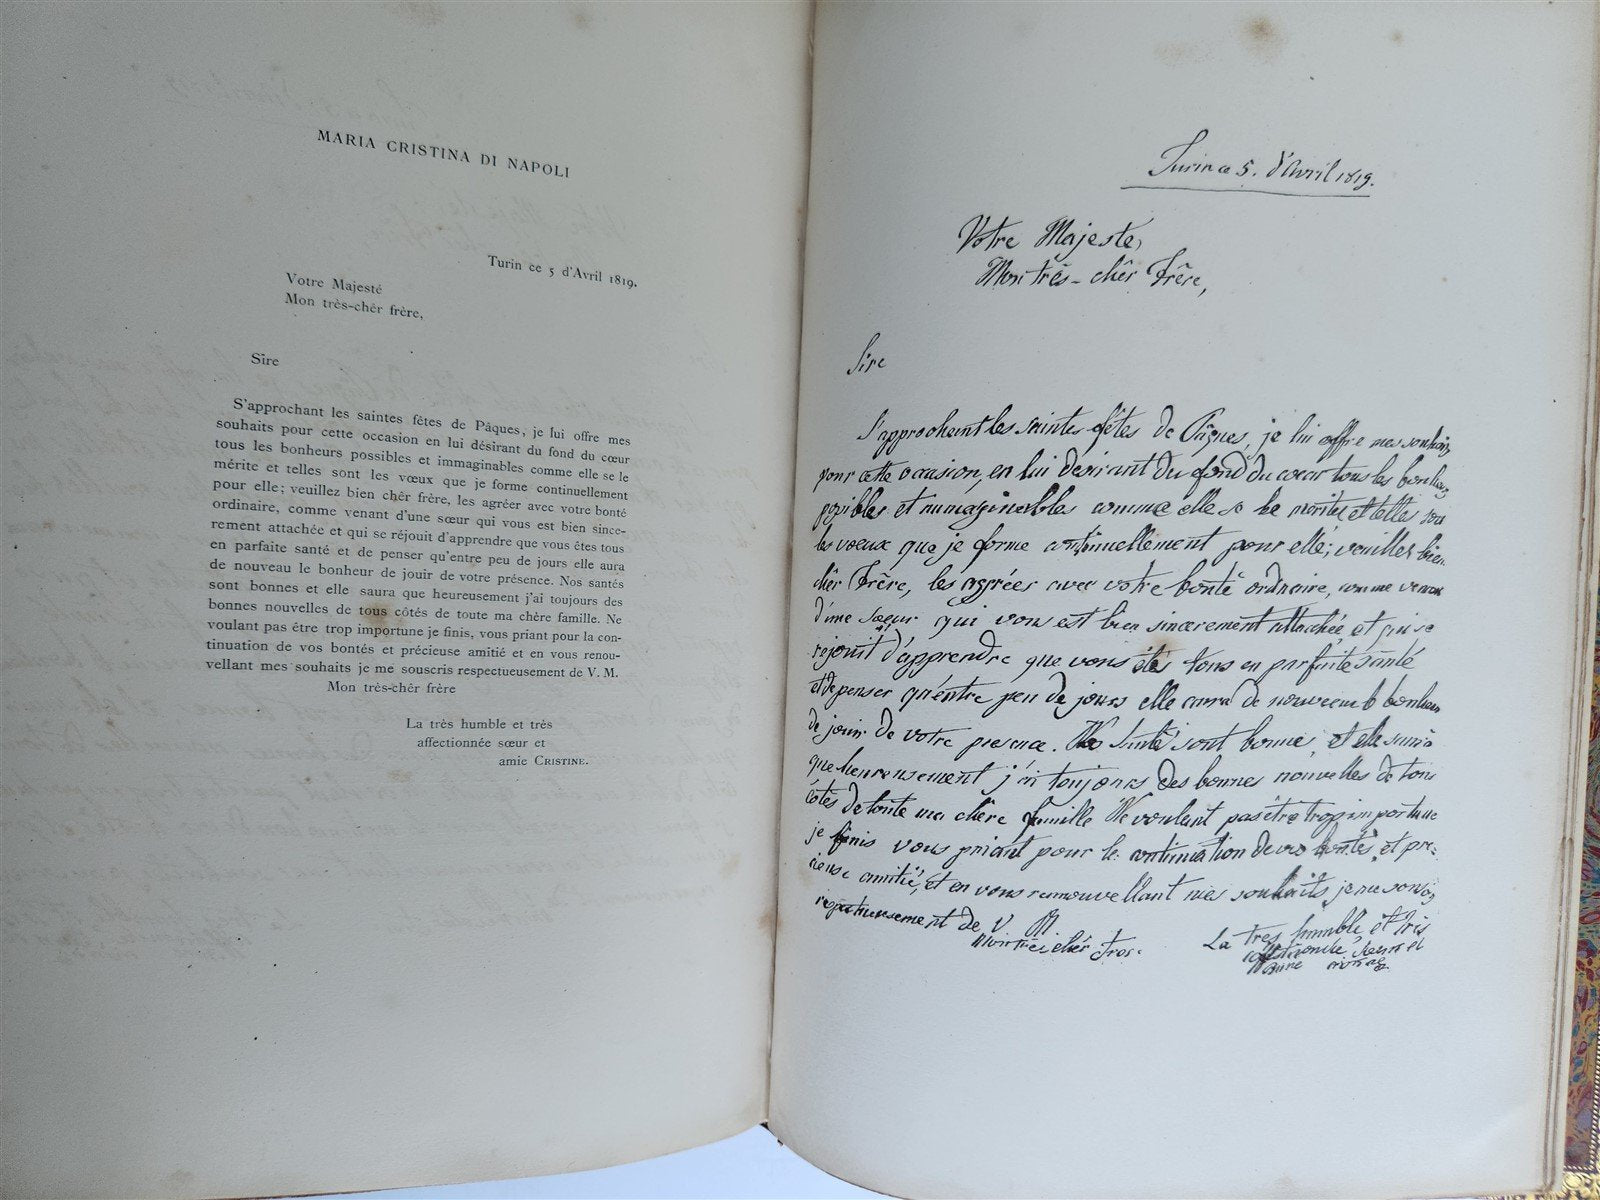 MARIA CRISTINA DI NAPOLI
Turin ce 5 d'Avril 1819.
Votre Majesté
Mon très-chêr frère,
Sire
S'approchant les saintes fêtes de Pâques, je lui offre mes
souhaits pour cette occasion en lui désirant du fond du cœur
tous les bonheurs possibles et immaginables comme elle se le
mérite et telles sont les vœux que je forme continuellement
pour elle; veuillez bien chêr frère, les agréer avec votre bonté
ordinaire, comme venant d'une sœur qui vous est bien since-
rement attachée et qui se réjouit d'apprendre que vous êtes tous
en parfaite santé et de penser qu'entre peu de jours elle aura
de nouveau le bonheur de jouir de votre présence. Nos santés
sont bonnes et elle saura que heureusement j'ai toujours des
bonnes nouvelles de tous côtés de toute ma chère famille. Ne
voulant pas être trop importune je finis, vous priant pour la con-
tinuation de vos bontés et précieuse amitié et en vous renou-
vellant mes souhaits je me souscris respectueusement de V. M.
Mon très-chêr frère
La très humble et très
affectionnée sœur et
amie CRISTINE.
Turin ce 5. d'Avril 1819.
Votre Majesté,
Mon très-chêr Frêre,
Sire
S'approchant les saintes fêtes de Pâques, je lui offre mes souhaits
pour cette occasion, en lui desirant du fond du coeur tous les bonheurs
possibles et immaginables comme elle se le mérite et telles sont
les voeux que je forme continuellement pour elle; veuillez bien
chêr Frêre, les agréer avec votre bonté ordinaire, comme venant
d'une soeur qui vous est bien sincerement attachée, et qui se
rejouit d'apprendre que vous êtes tous en parfaite santé
et de penser qu'entre peu de jours elle aura de nouveau le bonheur
de jouir de votre presence. Nos Santés sont bonnes, et elle saura
que heureusement j'ai toujours des bonnes nouvelles de tous
côtés de toute ma chêre famille Ne voulant pas être trop importune
je finis vous priant pour la continuation de vos bontés, et pre-
cieuse amitié, et en vous renouvellant mes souhaits, je me
respectueusement de V M
Mon très chêr
La très humble et très